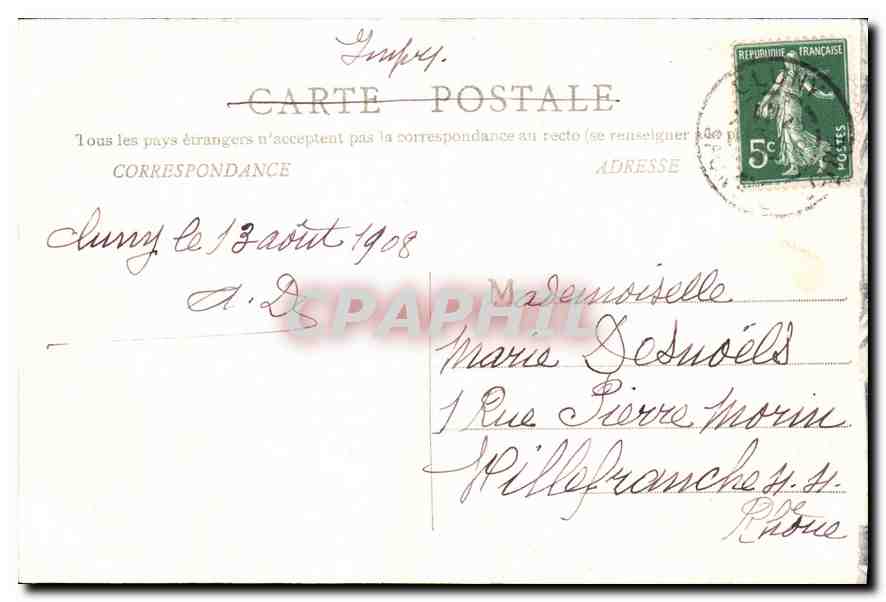 Impr.
CARTE POSTALE
Tous les pays étrangers n'acceptent pas la correspondance au recto (se renseigner
CORRESPONDANCE
ADRESSE
REPUBLIQUE FRANÇAISE
5c
POSTES
CLUNY
Cluny le 13 août 1908
A. D
CPAPHIL
Mademoiselle
Marie Desnoëls
1 Rue Pierre Morin
Villefranche s. s.
Rhône